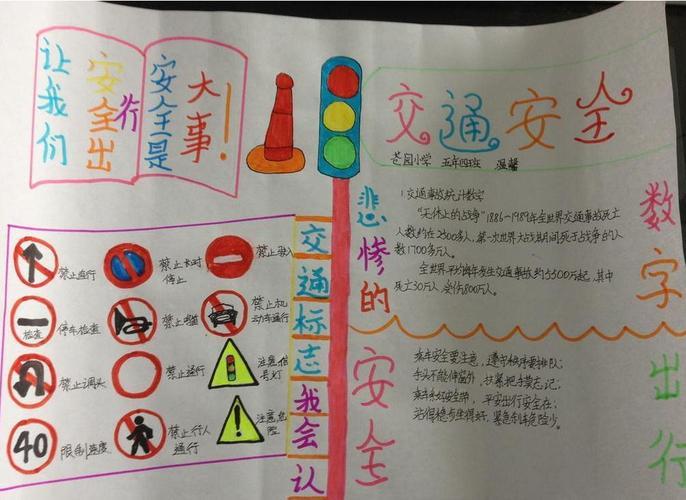 让我们
安全出
行
安全是
大事！
交通安全
苍园小学 五年四班 温馨
悲惨的
数字
1.交通事故统计数字
"无休止的战争"1886-1989年全世界交通事故死亡
人数约在2300多人，第一次世界大战期间死于战争的人
数1700多万人。
全世界平均每年发生交通事故约5500万起，其中
死亡30万人，受伤800万人。
交通标志我会认
禁止直行
禁止长时
停止
禁止驶入
检查
停车检查
禁止鸣笛
禁止机
动车通行
禁止调头
禁止通行
注意信
号灯
40
限制速度
禁止行人
通行
注意危
险
安全
出行
乘车安全要注意，遵守秩序要排队；
手头不能伸窗外，扶紧把手莫忘记；
平安出行安全在；
紧急刹车危险少。